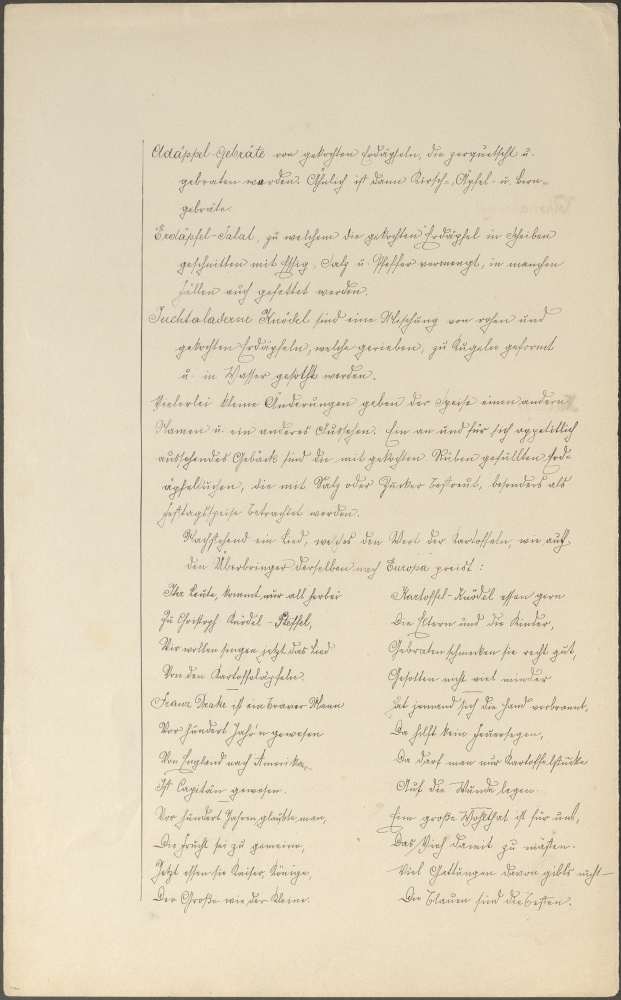 Adäppel-Gebräte von gekochten Erdäpfeln, die zerquetscht u.
gebraten werden. Ähnlich ist dann Kirsch-, Äpfel- u. Bern-
gebräte.
Erdäpfel-Salat, zu welchem die gekochten Erdäpfel in Scheiben
geschnitten mit Essig, Salz u. Pfeffer vermengt, in manchen
Fällen auch gefettet werden.
Knödel sind eine Mischung von rohen und
gekochten Erdäpfeln, welche gerieben, zu Kugeln geformt
u. in Wasser gekocht werden.
Vielerlei kleine Änderungen geben der Speise einen andern
Namen u. ein anderes Aussehen. Ein an und für sich appetitlich
aussehendes Gebäck sind die mit gekochten Rüben gefüllten Erd-
äpfelkuchen, die mit Salz oder Zucker bestreut, besonders als
Festtagsspeise betrachtet werden.
Nachstehend ein Lied, welches den Wert der Kartoffeln, wie auch
den Überbringer derselben nach Europa preist:
Ihr Leute, kommt nur all herbei
Zu Christoph Knödel-Stoffel,
Wir wollen singen jetzt das Lied
Von den Kartoffeläpfeln.
Franz Drake ist ein braver Mann
Vor hundert Jahr'n gewesen
Von England nach Amerika
Ist Capitän gewesen.
Vor hundert Jahren glaubte man,
Die Frucht sei zu gemeine,
Jetzt essen sie Kaiser, Könige,
Der Große wie der Kleine.
Kartoffel-Knödel essen gern
Die Eltern und die Kinder,
Gebraten schmecken sie recht gut,
Gesotten nicht viel minder
Hat jemand sich die Hand verbrannt,
Da hilft kein Feuersegen,
Da darf man nur Kartoffelstücke
Auf die Wunde legen.
Eine große Wohlthat ist für uns,
Das Vieh damit zu mästen.
Viel Gattungen davon gibts nicht –
Die Blauen sind die besten.